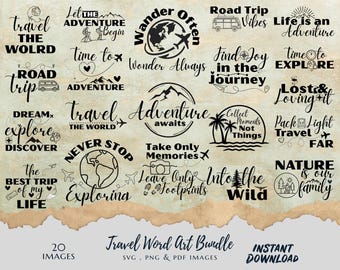 Travel
THE WOLRD
Let THE
ADVENTURE
Begin
Wander Often
Wonder Always
Road Trip
Vibes
Life is an
Adventure
ROAD
trip
Time to
ADVENTURE
Find Joy
in the
Journey
Time to
EXPLORE
DREAM
explore
DISCOVER
Travel
THE WORLD
Adventure
awaits
Collect Moments
Not Things
Lost&
Loving it
Pack Light
Travel
FAR
THE
BEST TRIP
of my
LIFE
NEVER STOP
Exploring
Take Only
Memories
LEAVE ONLY
Footprints
Into the
Wild
NATURE
is our
family
20
IMAGES
Travel Word Art Bundle
SVG , PNG & PDF IMAGES
INSTANT
DOWNLOAD